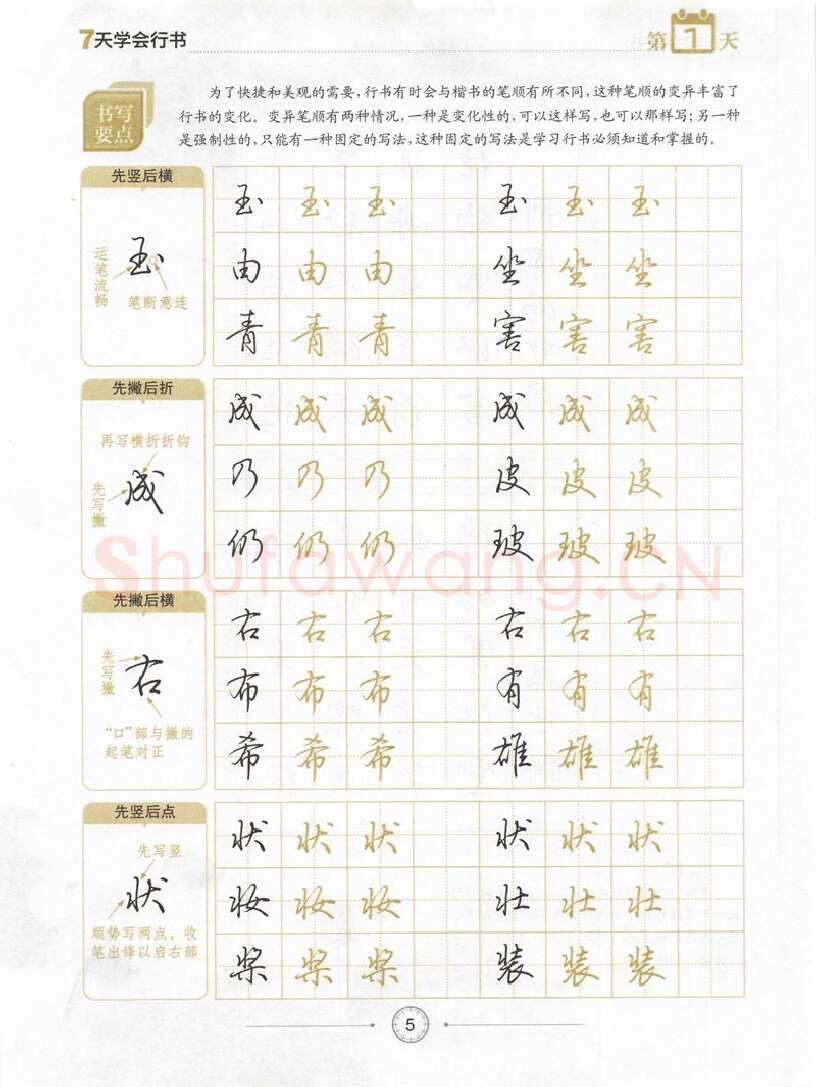 7天学会行书
第1天
书写
要点
为了快捷和美观的需要，行书有时会与楷书的笔顺有所不同，这种笔顺的变异丰富了
行书的变化。变异笔顺有两种情况，一种是变化性的，可以这样写，也可以那样写；另一种
是强制性的，只能有一种固定的写法，这种固定的写法是学习行书必须知道和掌握的。
先竖后横
玉
运笔流畅
笔断意连
玉 玉 玉 玉 玉 玉
由 由 由 坐 坐 坐
青 青 青 害 害 害
先撇后折
再写横折折钩
成
先写撇
成 成 成 成 成 成
乃 乃 乃 皮 皮 皮
仍 仍 仍 玻 玻 玻
Shufawang.CN
先撇后横
先写撇
右
“口”部与撇的
起笔对正
右 右 右 右 右 右
布 布 布 有 有 有
希 希 希 雄 雄 雄
先竖后点
先写竖
状
顺势写两点，收
笔出锋以启右部
状 状 状 状 状 状
妆 妆 妆 壮 壮 壮
桨 桨 桨 装 装 装
5